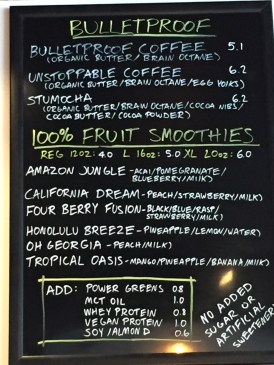 BULLETPROOF
BULLETPROOF COFFEE 5.1
(ORGANIC BUTTER/BRAIN OCTANE)
UNSTOPPABLE COFFEE 6.2
(ORGANIC BUTTER/BRAIN OCTANE/EGG YOLKS)
STUMOCHA 6.2
(ORGANIC BUTTER/BRAIN OCTANE/COCOA NIBS/
COCOA BUTTER/COCOA POWDER)
100% FRUIT SMOOTHIES
REG 12OZ: 4.0 L 16OZ: 5.0 XL 20OZ: 6.0
AMAZON JUNGLE -ACAI/POMEGRANATE/
BLUEBERRY/MILK)
CALIFORNIA DREAM -PEACH/STRAWBERRY/MILK)
FOUR BERRY FUSION -BLACK/BLUE/RASP/
STRAWBERRY/MILK)
HONOLULU BREEZE -PINEAPPLE/LEMON/WATER)
OH GEORGIA -PEACH/MILK)
TROPICAL OASIS -MANGO/PINEAPPLE/BANANA/MILK)
ADD: POWER GREENS 0.8
MCT OIL 1.0
WHEY PROTEIN 0.8
VEGAN PROTEIN 1.0
SOY/ALMOND 0.6
NO ADDED
SUGAR OR
ARTIFICIAL
SWEETENERS